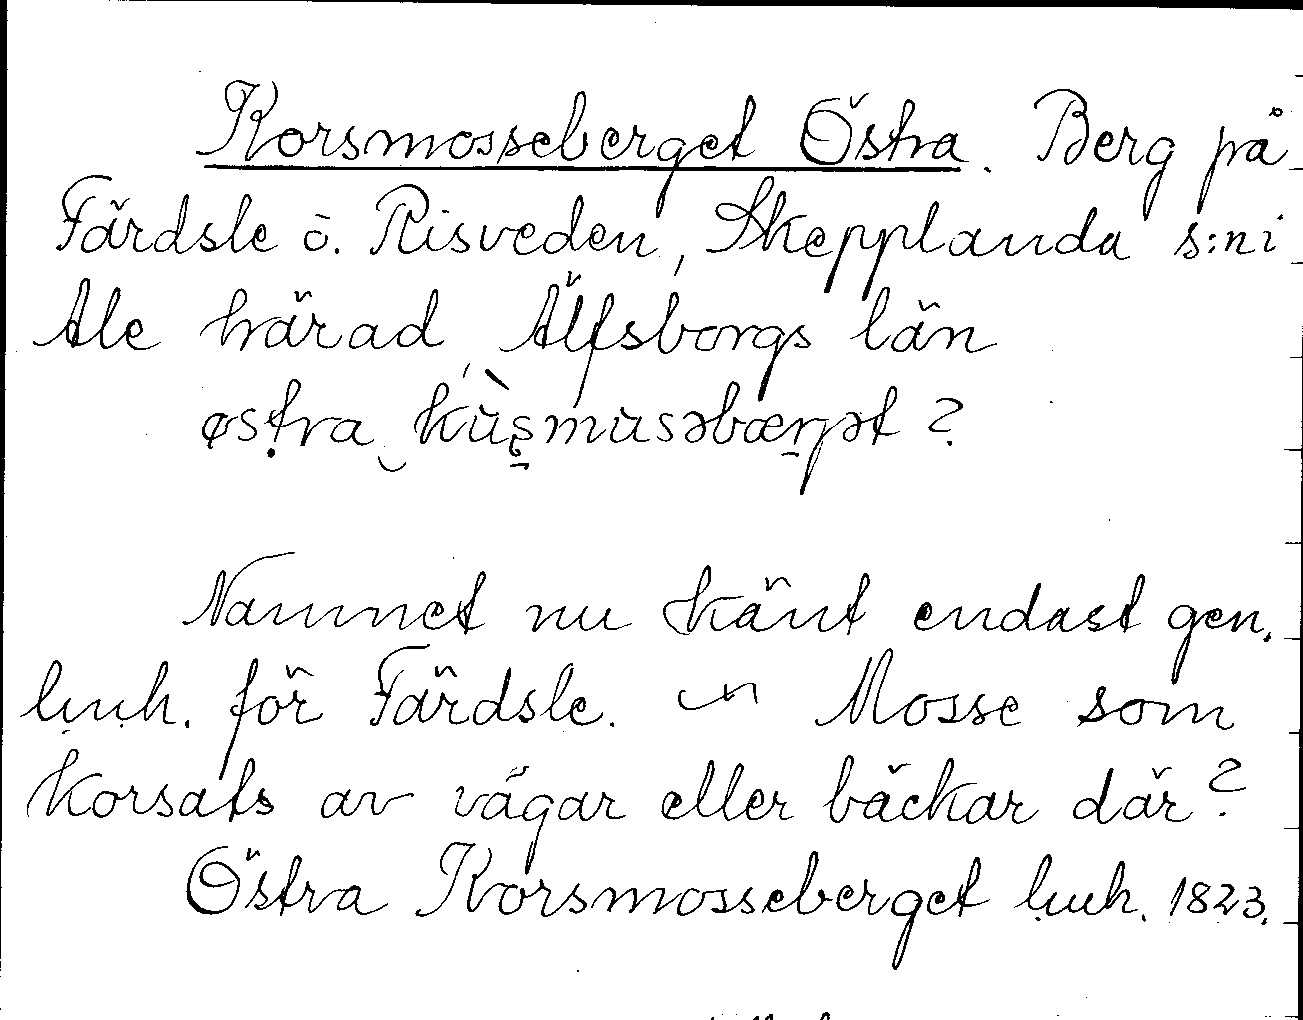 Korsmosseberget Östra. Berg på
Färdsle ö. Risveden, Skepplanda s:n i
Ale härad, Älfsborgs län
østra kùs̠musəbærjət ?
Namnet nu känt endast gen.
luuh. för Färdsle. ~ Mosse som
korsats av vägar eller bäckar där?
Östra Korsmosseberget luuh. 1823.